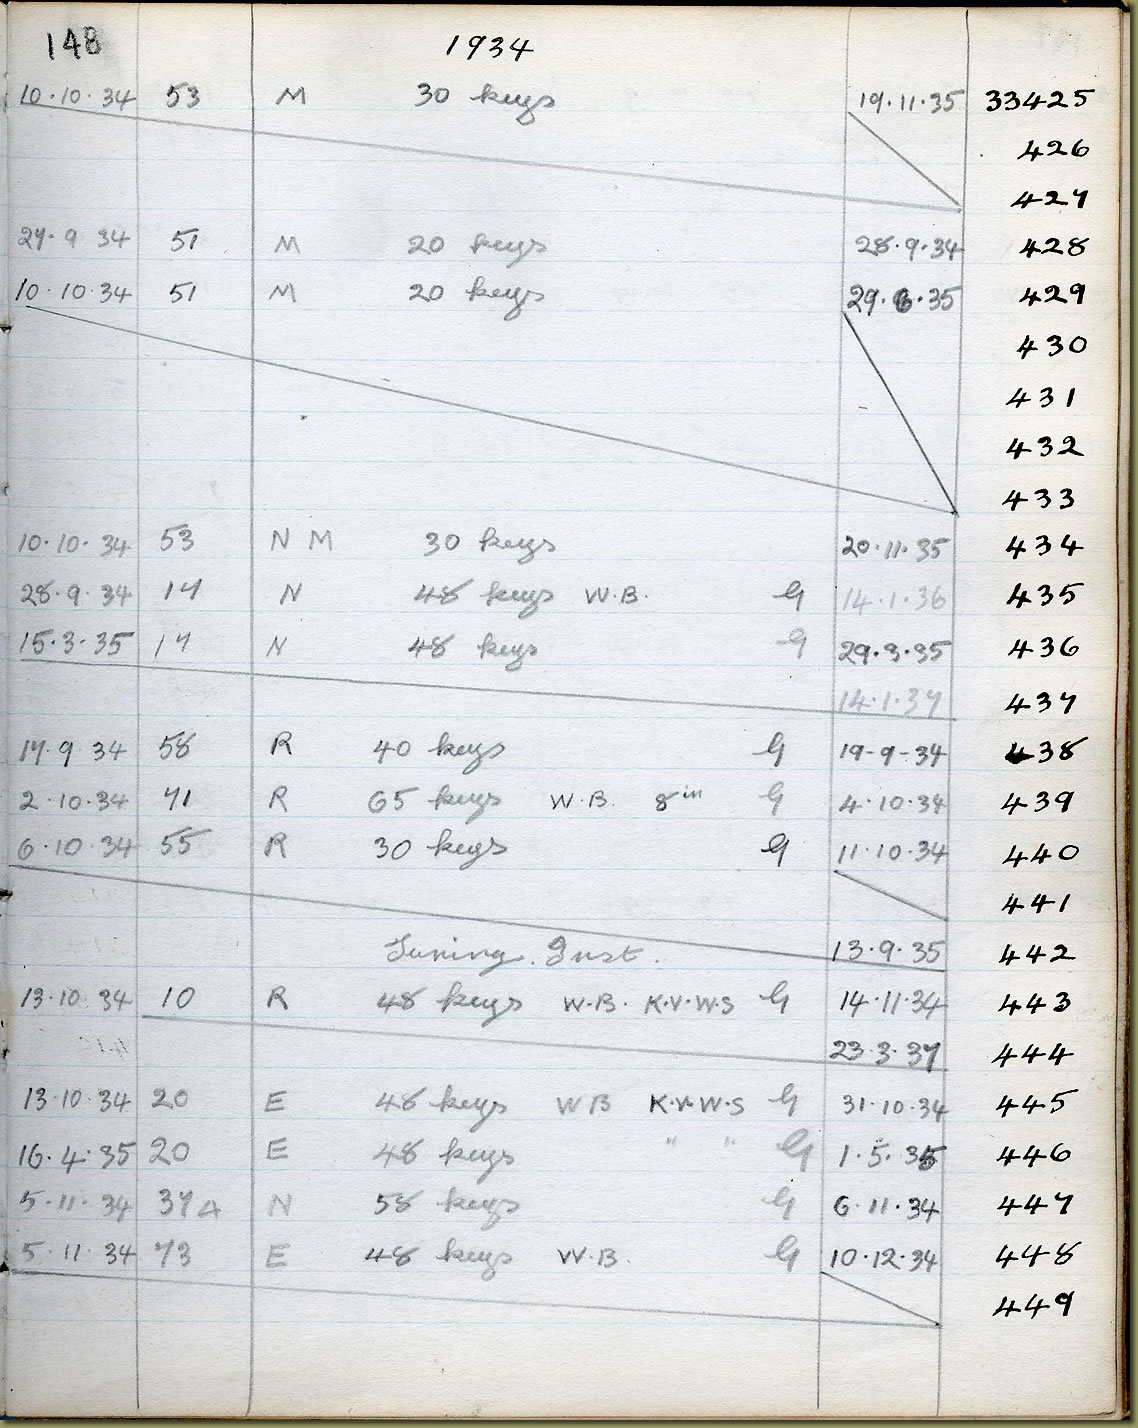 148 1934
10.10.34 53 M 30 keys 19.11.35 33425
426
427
27.9 34 51 M 20 keys 28.9.34 428
10.10.34 51 M 20 keys 29.6.35 429
430
431
432
433
10.10.34 53 N M 30 keys 20.11.35 434
28.9.34 17 N 48 keys W.B. G 14.1.36 435
15.3.35 17 N 48 keys G 29.3.35 436
14.1.37 437
17.9 34 58 R 40 keys G 19-9-34 438
2.10.34 71 R 65 keys W.B. 8in G 4.10.34 439
6.10.34 55 R 30 keys G 11.10.34 440
441
Tuning. Inst. 13.9.35 442
13.10 34 10 R 48 keys W.B. K.V.W.S G 14.11.34 443
23.3.37 444
13.10.34 20 E 48 keys W B K.V.W.S G 31.10.34 445
16.4.35 20 E 48 keys " " G 1.5.35 446
5.11.34 37A N 58 keys G 6.11.34 447
5.11.34 73 E 48 keys W.B. G 10.12.34 448
449